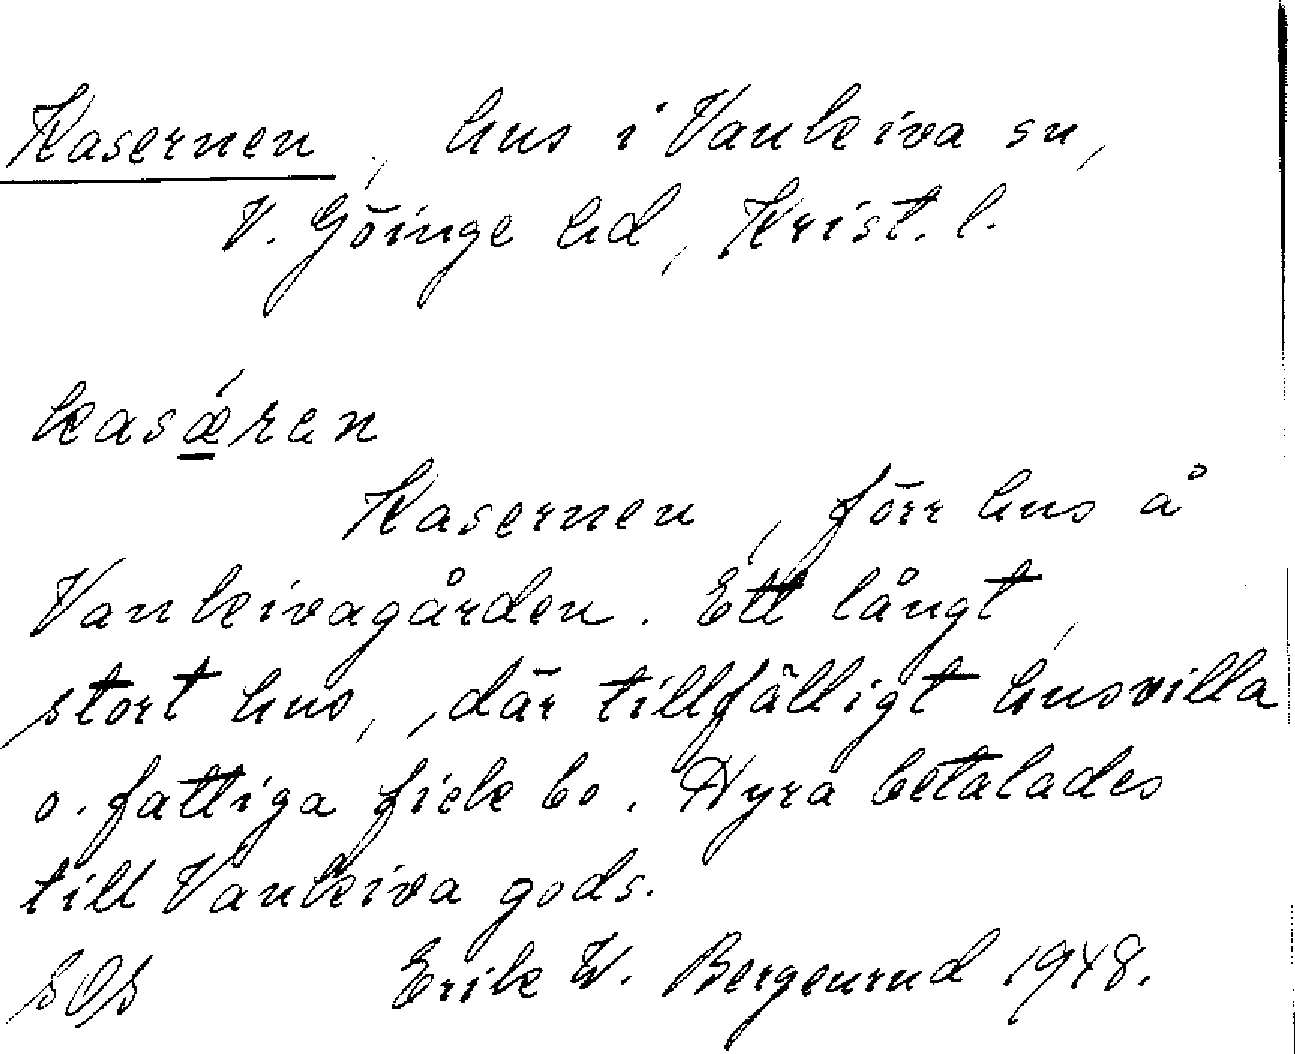 Kasernen, hus i Vankiva sn,
V. Göinge hd, Krist. l.
kasǽren
Kasernen, förr hus å
Vankivagården. Ett långt,
stort hus, där tillfälligt husvilla
o. fattiga fick bo. Hyra betalades
till Vankiva gods.
SOS Erik W. Bergenrud 1948.